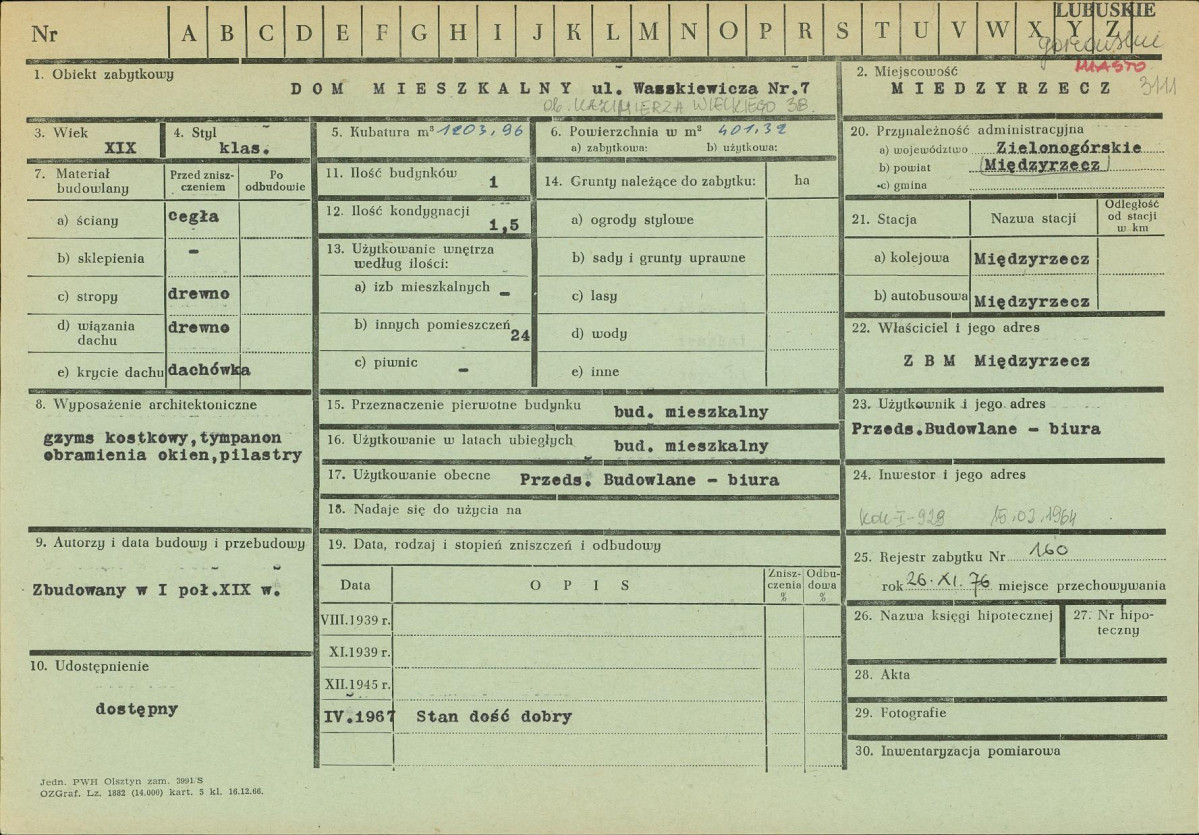 LUBUSKIE
Nr A B C D E F G H I J K L M N O P R S T U V W X Y Z
gorzowskie
MIASTO
3111
1. Obiekt zabytkowy
DOM MIESZKALNY ul. Wasskiewicza Nr.7
ob. KAZIMIERZA WIELKIEGO 38.
2. Miejscowość
MIEDZYRZECZ
3. Wiek
XIX
4. Styl
klas.
5. Kubatura m³ 1203,96
6. Powierzchnia w m² 401.32
a) zabytkowa: b) użytkowa:
20. Przynależność administracyjna
a) województwo Zielonogórskie
b) powiat (Międzyrzecz)
c) gmina
7. Materiał budowlany
Przed znisz-
czeniem
Po
odbudowie
a) ściany cegła
b) sklepienia -
c) stropy drewno
d) wiązania
dachu drewno
e) krycie dachu dachówka
11. Ilość budynków
1
12. Ilość kondygnacji
1,5
13. Użytkowanie wnętrza
według ilości:
a) izb mieszkalnych -
b) innych pomieszczeń 24
c) piwnic -
14. Grunty należące do zabytku: ha
a) ogrody stylowe
b) sady i grunty uprawne
c) lasy
d) wody
e) inne
21. Stacja Nazwa stacji
Odległość
od stacji
w km
a) kolejowa Międzyrzecz
b) autobusowa Międzyrzecz
22. Właściciel i jego adres
Z B M Międzyrzecz
8. Wyposażenie architektoniczne
gzyms kostkowy,tympanon
obramienia okien,pilastry
15. Przeznaczenie pierwotne budynku bud. mieszkalny
16. Użytkowanie w latach ubiegłych bud. mieszkalny
17. Użytkowanie obecne Przeds. Budowlane - biura
18. Nadaje się do użycia na
23. Użytkownik i jego adres
Przeds.Budowlane - biura
24. Inwestor i jego adres
KOK-I-928 15.03.1964
9. Autorzy i data budowy i przebudowy
Zbudowany w I poł.XIX w.
19. Data, rodzaj i stopień zniszczeń i odbudowy
Data OPIS
Znisz-
czenia
%
Odbu-
dowa
%
VIII.1939 r.
XI.1939 r.
XII.1945 r.
IV.1967 Stan dość dobry
25. Rejestr zabytku Nr 160
rok 26.XI.76 miejsce przechowywania
26. Nazwa księgi hipotecznej
27. Nr hipo-
teczny
10. Udostępnienie
dostępny
28. Akta
29. Fotografie
30. Inwentaryzacja pomiarowa
Jedn. PWH Olsztyn zam. 3991/S
OZGraf. Lz. 1882 (14.000) kart. 5 kl. 16.12.66.